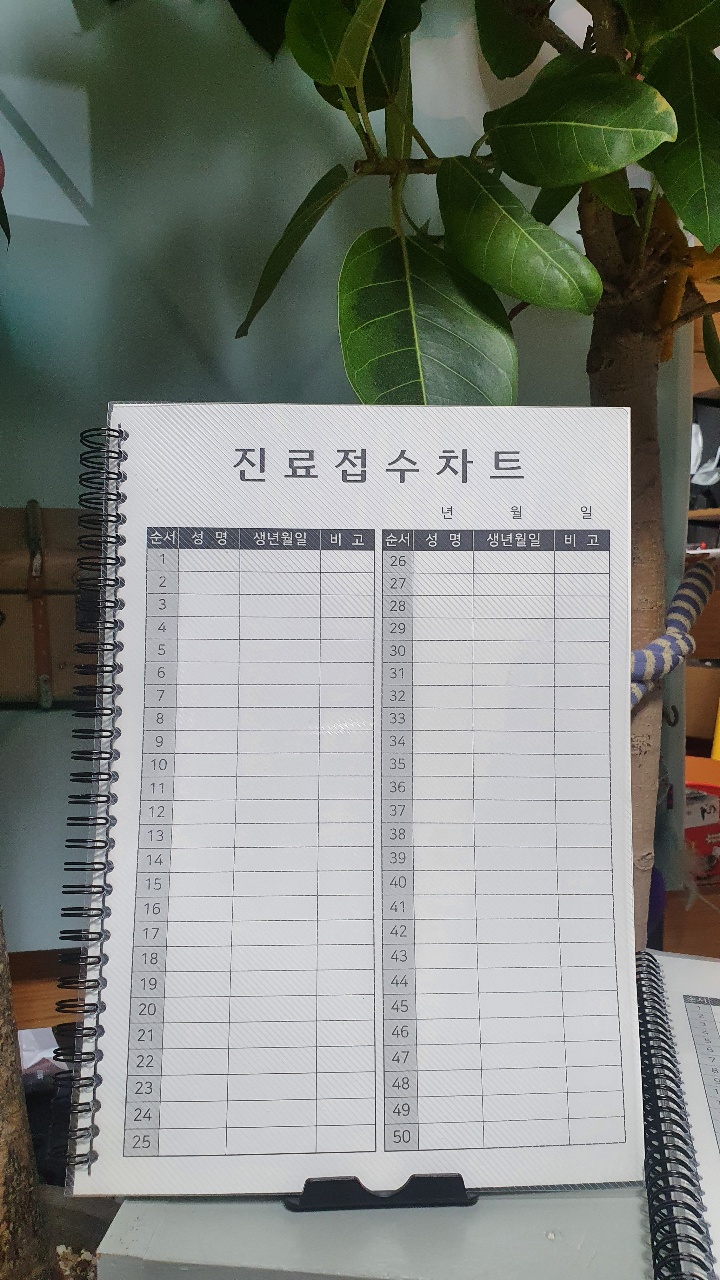 진료접수차트
년 월 일
순서 성명 생년월일 비고 순서 성명 생년월일 비고
1 26
2 27
3 28
4 29
5 30
6 31
7 32
8 33
9 34
10 35
11 36
12 37
13 38
14 39
15 40
16 41
17 42
18 43
19 44
20 45
21 46
22 47
23 48
24 49
25 50